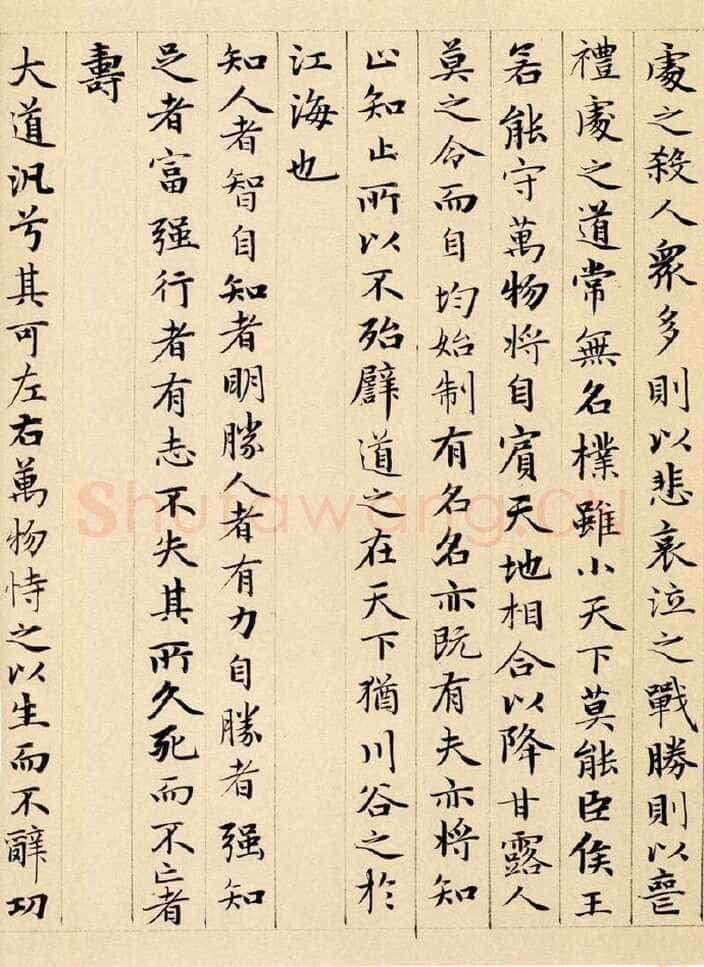 處之殺人衆多則以悲哀泣之戰勝則以喪
禮處之道常無名樸雖小天下莫能臣侯王
若能守萬物將自賓天地相合以降甘露人
莫之令而自均始制有名名亦既有夫亦將知
止知止所以不殆譬道之在天下猶川谷之於
江海也
知人者智自知者明勝人者有力自勝者强知
足者富强行者有志不失其所久死而不亡者
壽
大道汎兮其可左右萬物恃之以生而不辭功
Shufawang.CN